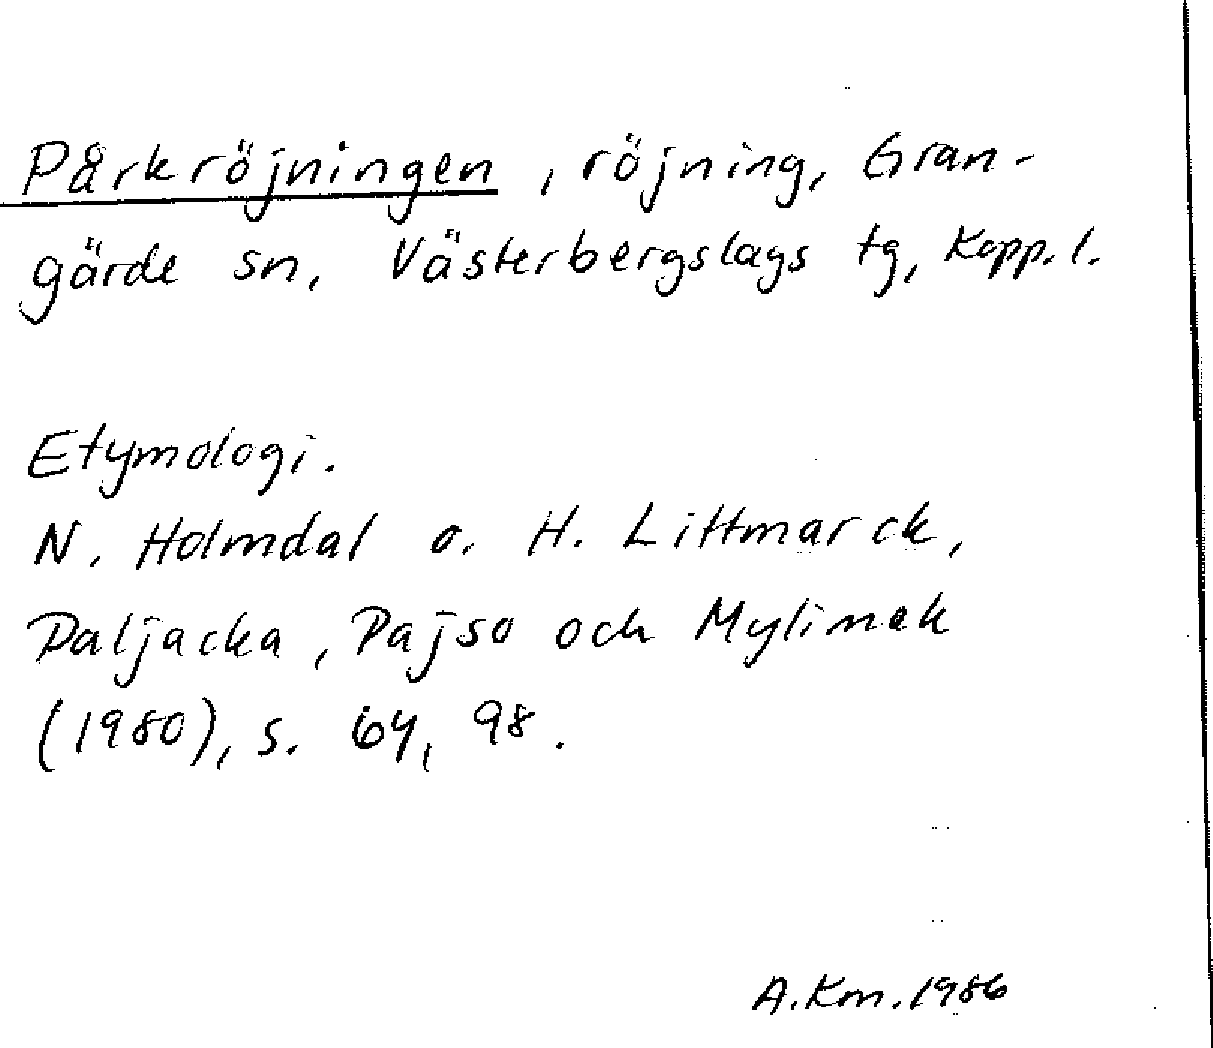 Pårkröjningen, röjning, Gran-
gärde sn, Västerbergslags tg, Kopp. l.
Etymologi.
N. Holmdal o. H. Littmarck,
Paljacka, Pajso och Mylimak
(1980), s. 64, 98.
A.Km.1986